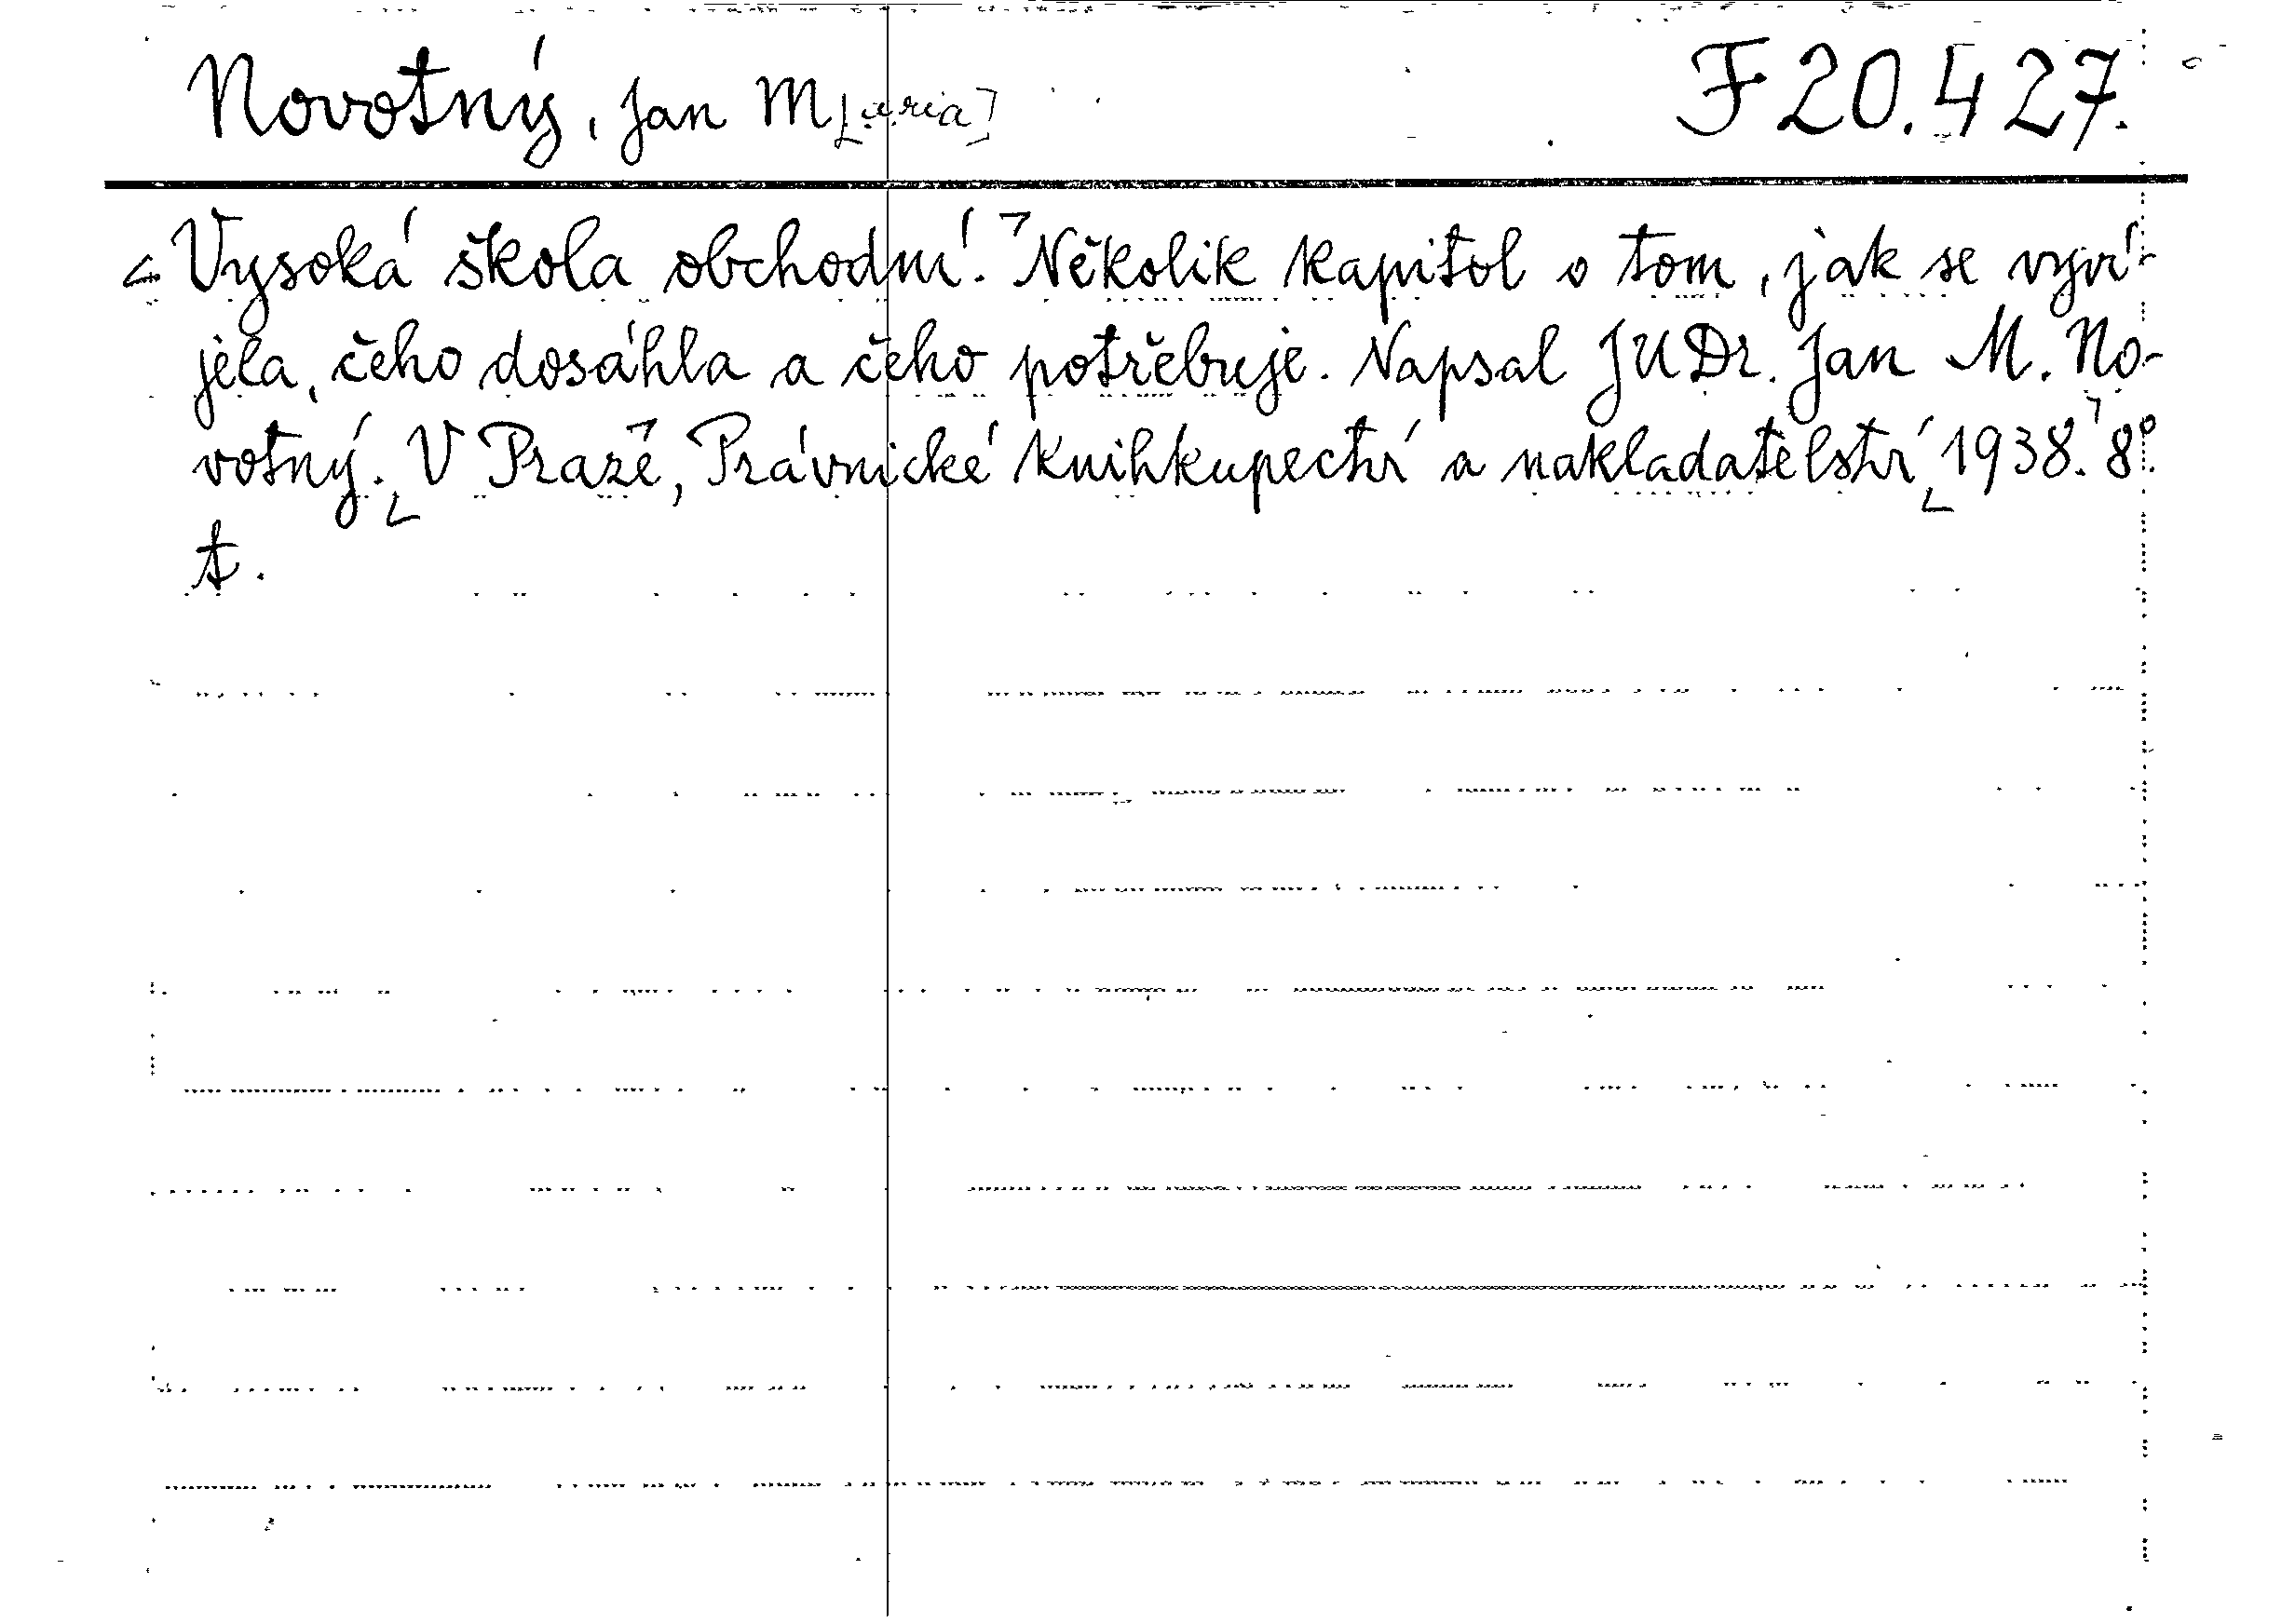 Novotný, Jan M[aria] F 20.427.
Vysoká škola obchodní. Několik kapitol o tom, jak se vyví-
jela, čeho dosáhla a čeho potřebuje. Napsal JUDr. Jan M. No-
votný. V Praze, Právnické knihkupectví a nakladatelství 1938. 8°.
t.